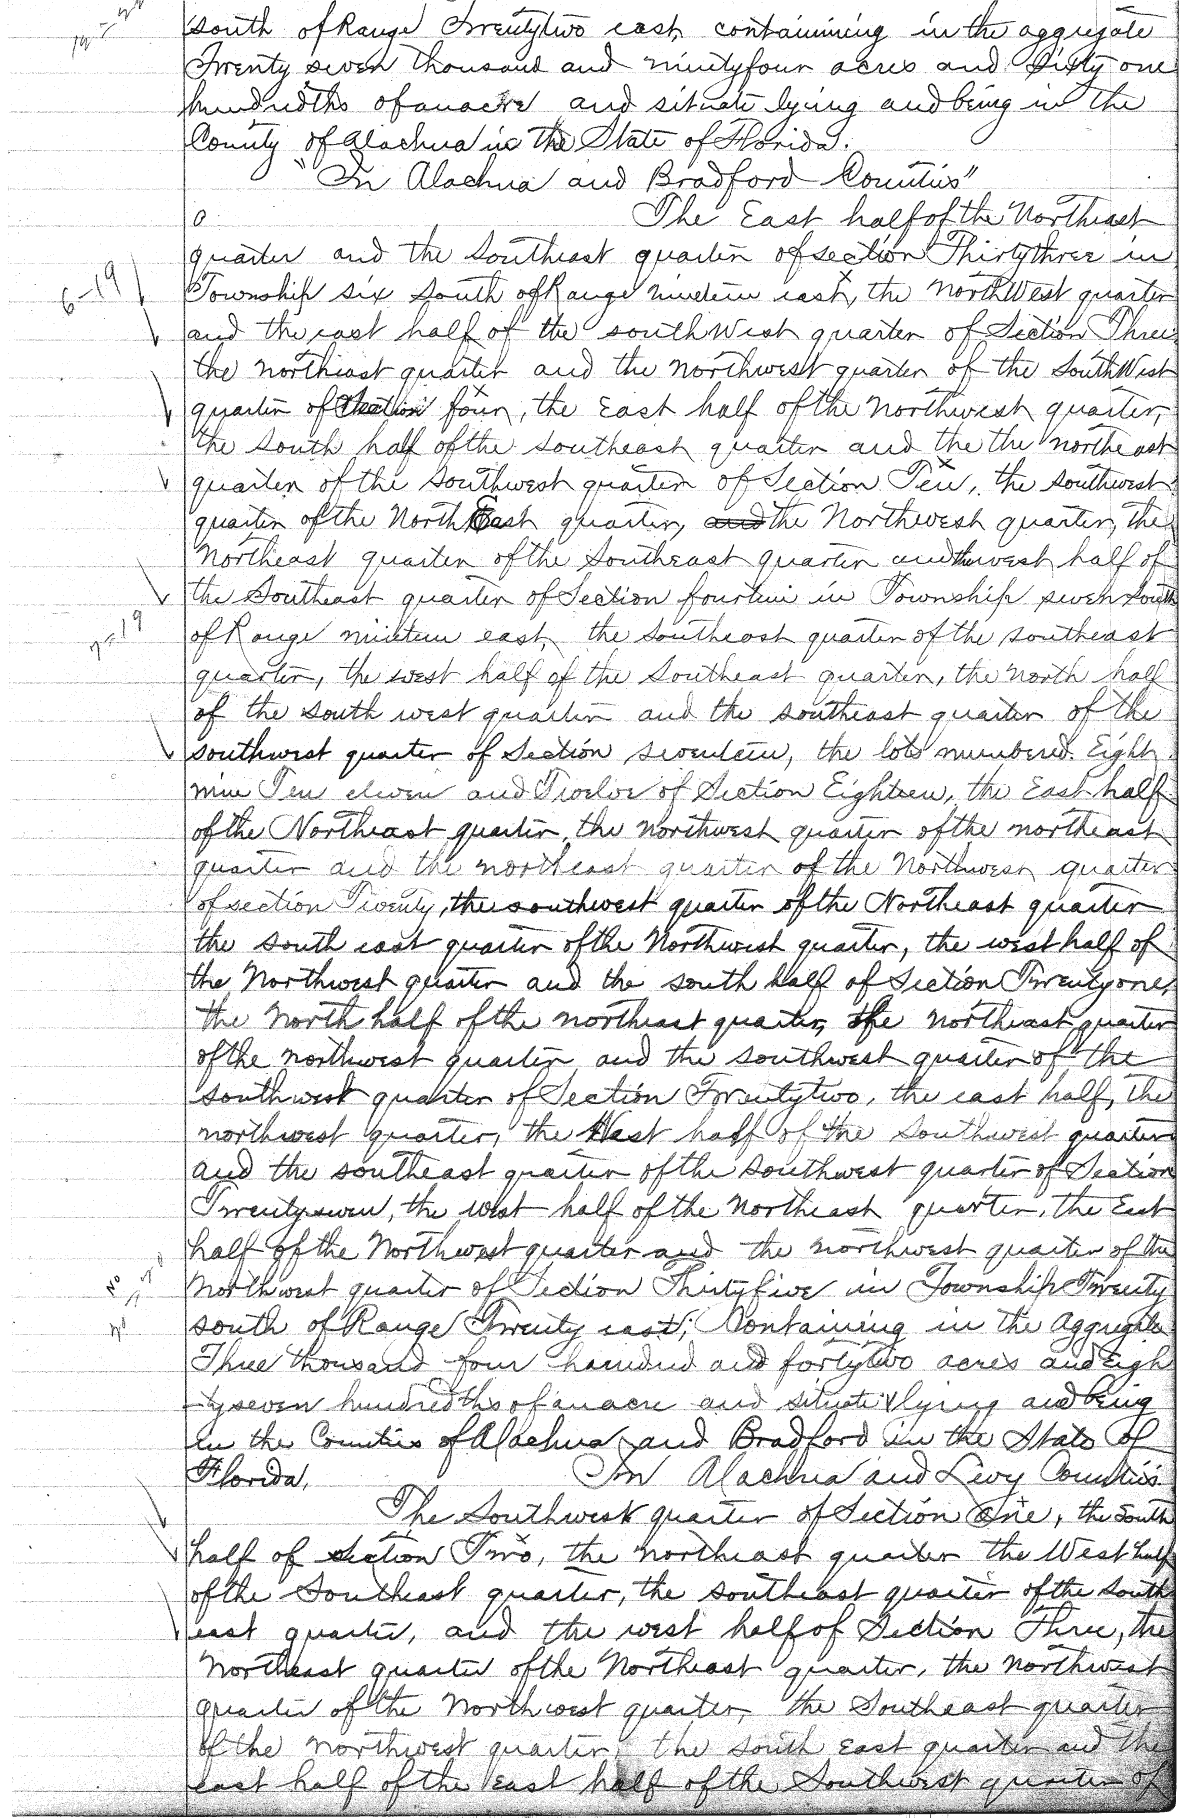 south of Range Twentytwo east, containining in the aggregate
Twenty seven thousand and ninetyfour acres and Sixty one
hundredths of an acre and situate lying and being in the
County of Alachua in the State of Florida.
"In Alachua and Bradford Counties"
The East half of the Northeast
quarter and the Southeast quarter of section Thirtythree in
6-19
Township six South of Range nineteen east, the NorthWest quarter
and the east half of the southWest quarter of Section Three
the northeast quarter and the northwest quarter of the SouthWest
quarter of Section four, the East half of the Northwest quarter,
the south half of the southeast quarter and the the northeast
quarter of the southwest quarter of Section Ten, the southwest
quarter of the NorthEast quarter, and the Northwest quarter, the
Northeast quarter of the Southeast quarter and the west half of
the Southeast quarter of Section fourteen in Township seven South
7-19
of Range nineteen east, the southeast quarter of the southeast
quarter, the west half of the Southeast quarter, the north half
of the south west quarter and the southeast quarter of the
southwest quarter of Section seventeen, the lots numbered Eight
nine Ten eleven and Twelve of Section Eighteen, the East half
of the Northeast quarter, the northwest quarter of the northeast
quarter and the northeast quarter of the Northwest quarter
of section Twenty, the southwest quarter of the Northeast quarter
the south east quarter of the Northwest quarter, the west half of
the Northwest quarter and the south half of Section Twentyone,
the North half of the northeast quarter, the northeast quarter
of the northwest quarter and the southwest quarter of the
southwest quarter of Section Twentytwo, the east half, the
northwest quarter, the West half of the Southwest quarter
and the southeast quarter of the Southwest quarter of Section
Twentyseven, the west half of the Northeast quarter, the East
half of the Northwest quarter and the northwest quarter of the
Northwest quarter of Section Thirtyfive in Township Twenty
south of Range Twenty east; Containing in the Aggregate
Three thousand four hundred and fortytwo acres and Eigh
-tyseven hundredths of an acre and situate lying and being
in the Counties of Alachua and Bradford in the State of
Florida. In Alachua and Levy Counties.
The Southwest quarter of Section One, the South
half of section Two, the northeast quarter the West half
of the Southeast quarter, the southeast quarter of the south
east quarter, and the west half of Section Three, the
Northeast quarter of the Northeast quarter, the northwest
quarter of the Northwest quarter, the Southeast quarter
of the Northwest quarter, the south East quarter and the
east half of the East half of the Southwest quarter of